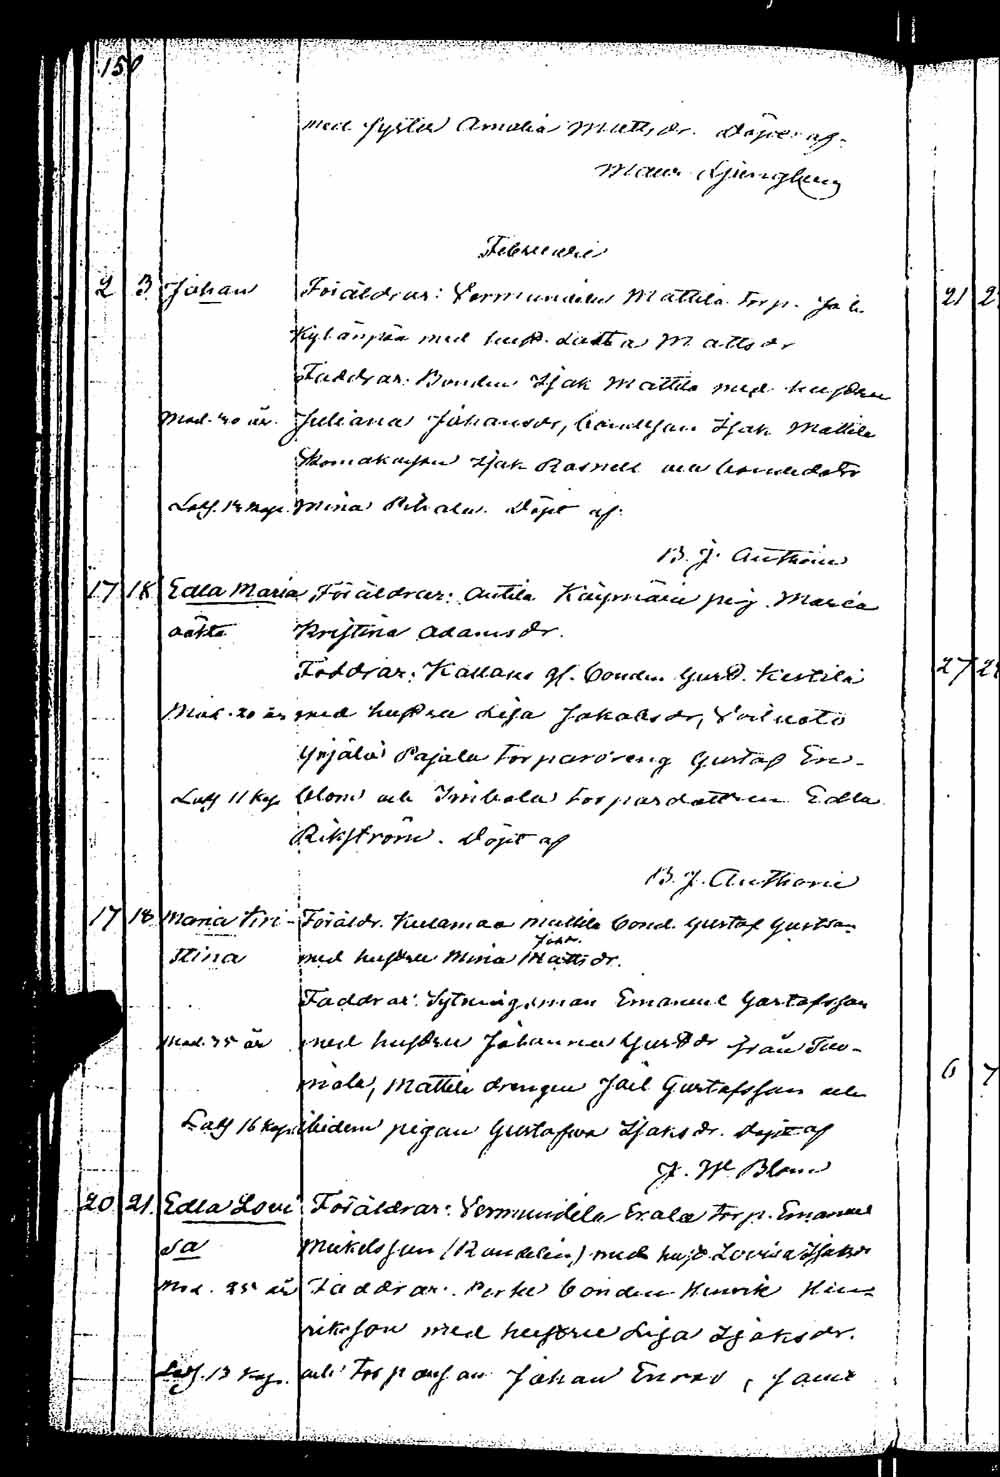 150
med syster Amalia Mattsdr. Döpt af
Maur. Ljungberg
Februarii
2 3 Johan Föräldrar: Vermundila Mattila torp. Joh.
Kylänpää med hust. Lovisa Mattsdr
Faddrar: Bonden Isak Mattila med hustru
Mod. 40 år. Juliana Johansdr, bondeson Isak Mattila
Skomakaren Isak Rosnell och bondedotr
Läsf. 18 Kap. Mina Pihala. Döpt af
B. J. Anthoni
17 18 Edla Maria Föräldrar: Antila Käymäri pig. Maria
oäkta Kristina Adamsdr.
Faddrar: Kallans gl. bonden Gust. Kestilä
Mod. 20 år med hustru Lisa Jakobsdr,
Yrjälä Pajala torparedreng Gustaf En-
Läsf 11 Kap blom och Innbala torpardottren Edla
Rikström. Döpt af
B. J. Anthoni
17 18 Maria Kri- Föräldr. Kulamaa Mattila bond. Gustaf Gustafsson
stina med hustru Mina Mattsdr.
Faddrar: Sytningsman Emanuel Gustafsson
Mod. 35 år med hustru Johanna Gustdr från Tuo-
mola, Mattila drengen Joel Gustafsson och
Läsf 16 Kap. ibidem pigan Gustafva Isaksdr. Döpt af
J. W. Blom
20 21 Edla Lovi Föräldrar: Vermundila Erala torp. Emanuel
sa Mickelsson (Randelin) med hust. Lovisa Isaksdr
Mod. 25 år Faddrar: bonden Henrik Hen-
riksson med hustru Lisa Isaksdr.
Läsf. 13 Kap. och torparson Johan Enros, samt
21
27
6 7